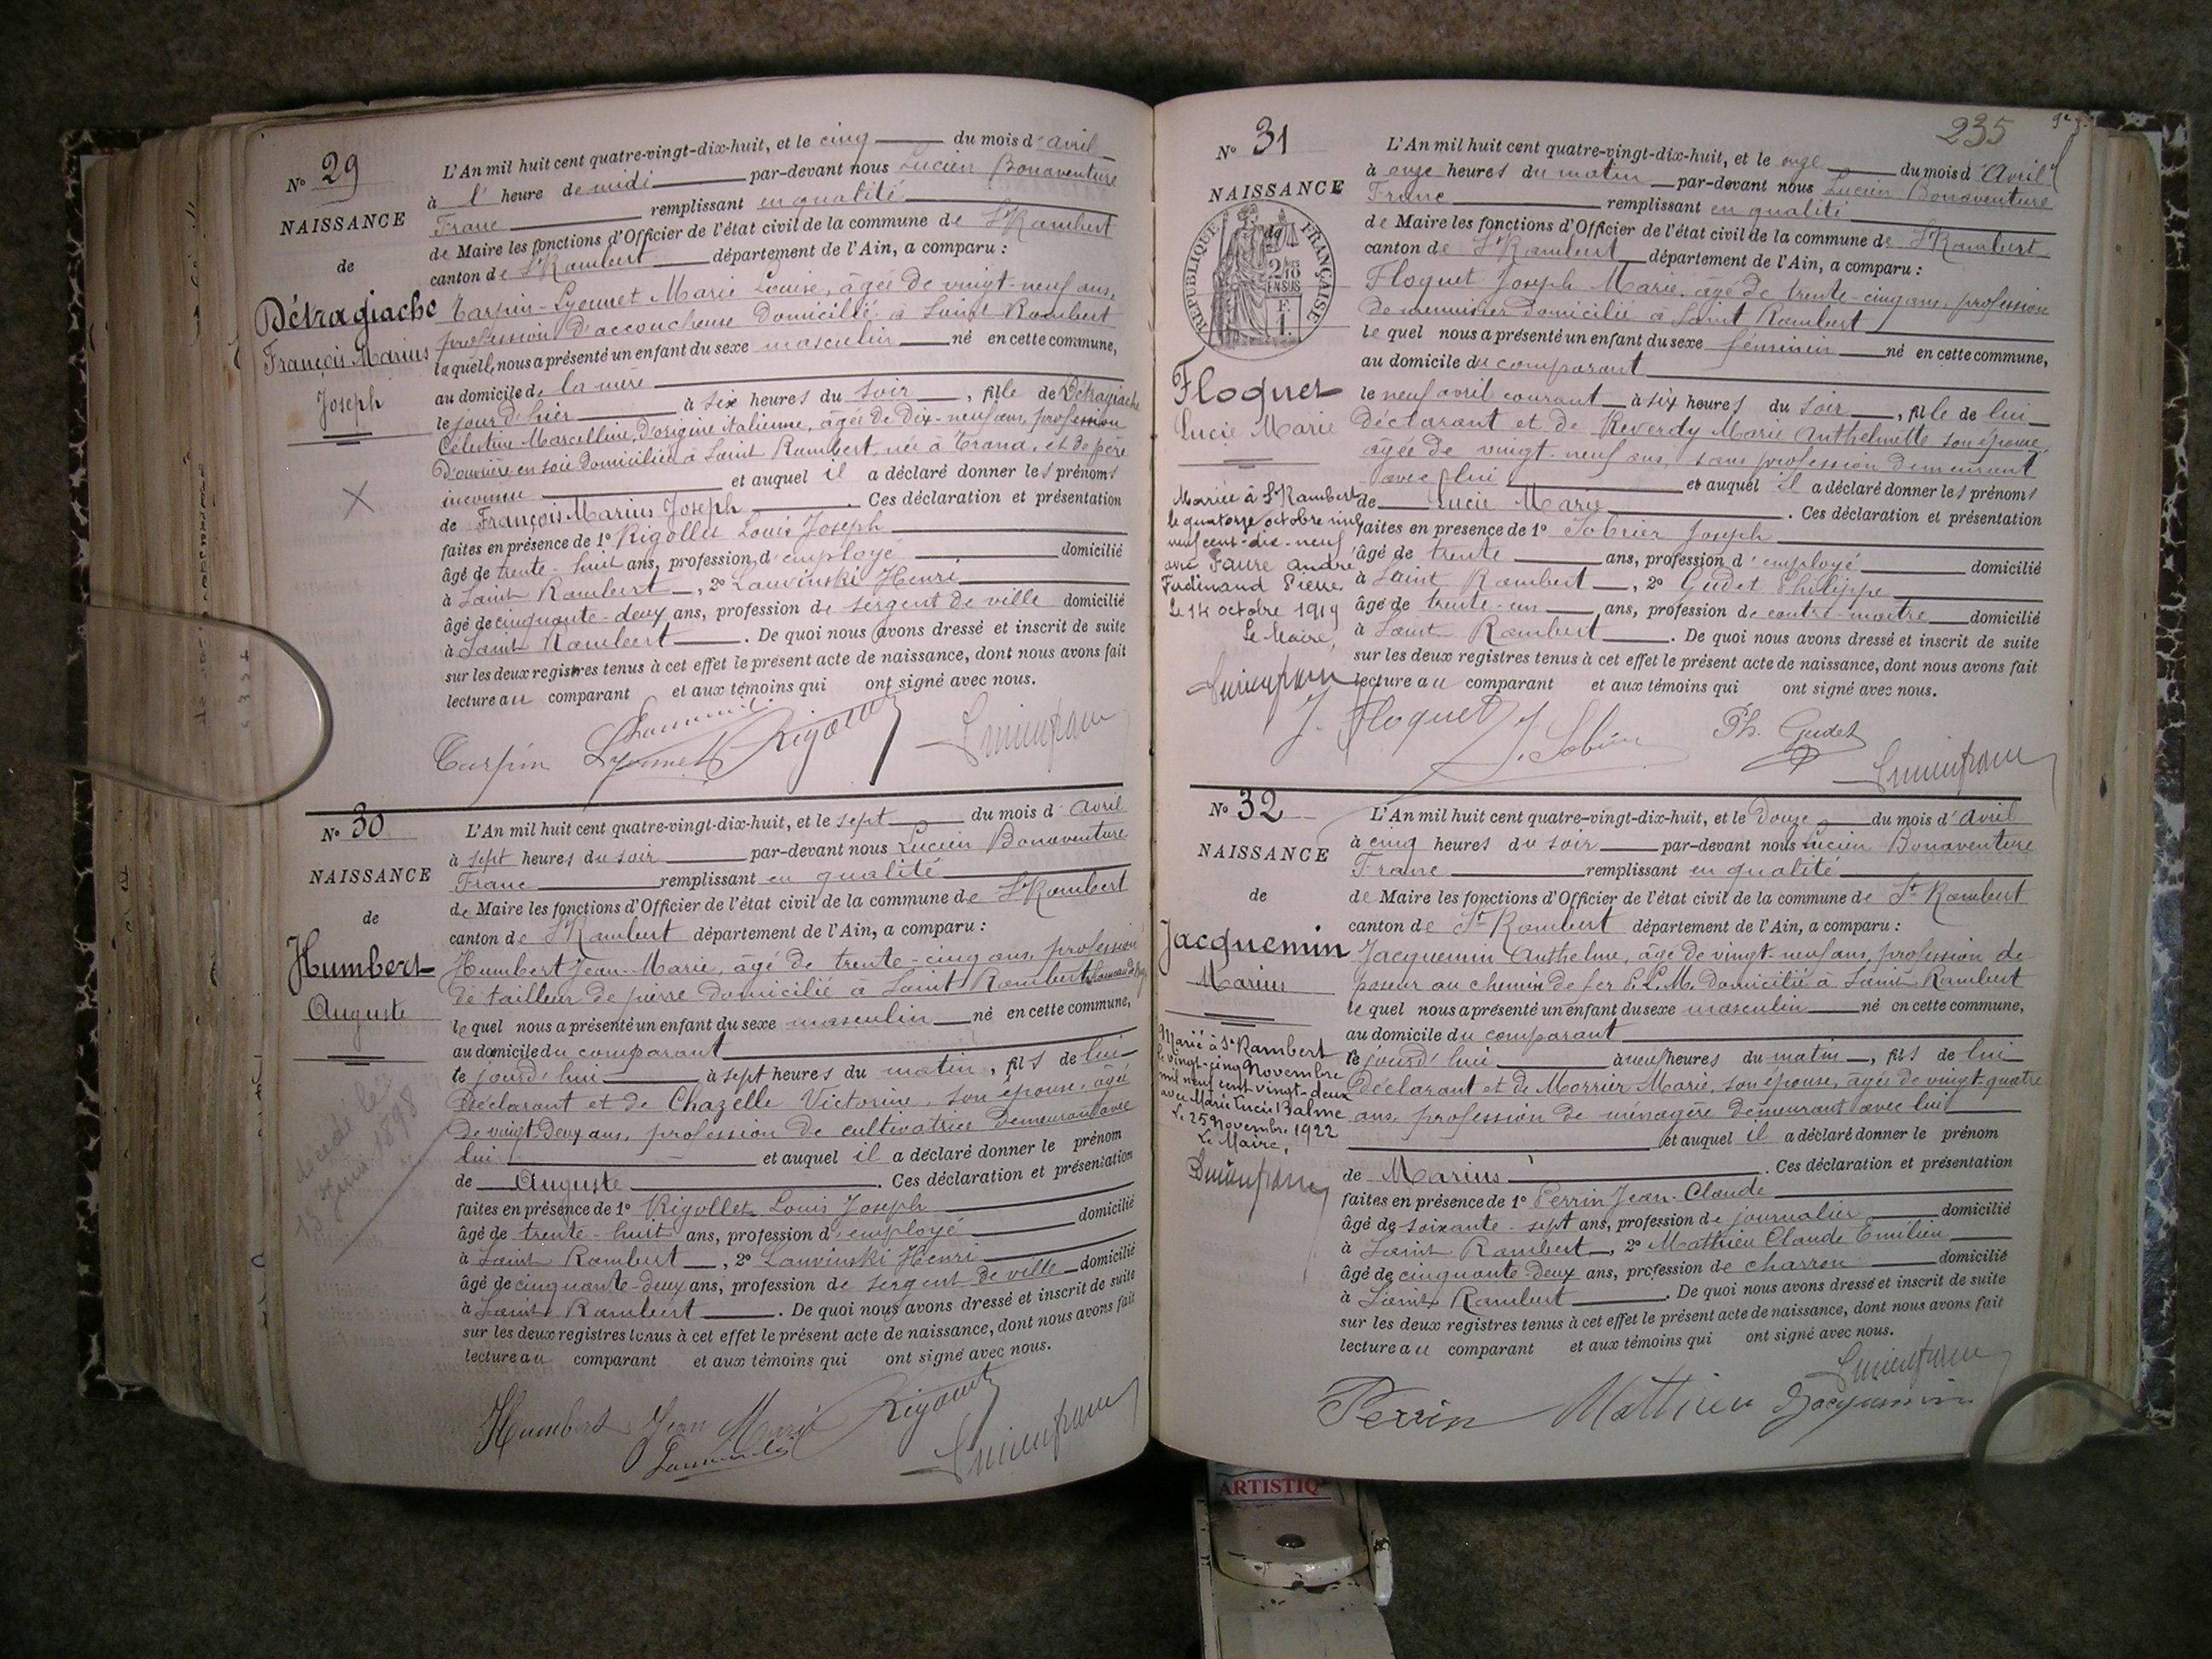 N° 29
NAISSANCE
de
Détragiache
François Marius
Joseph
L'An mil huit cent quatre-vingt-dix-huit, et le cinq du mois d'avril
à l' heure de midi par-devant nous Lucien Bonaventure
Franc remplissant en qualité
de Maire les fonctions d'Officier de l'état civil de la commune de St Rambert
canton de St Rambert département de l'Ain, a comparu :
Tarpin-Lyonnet Marie Louise, âgée de vingt-neuf ans,
profession d'accoucheuse domicilié à Saint Rambert
laquelle nous a présenté un enfant du sexe masculin né en cette commune,
au domicile de la mère
le jour d'hier à six heures du soir, fils de Détragiache
Célestine Marcelline, d'origine italienne, âgée de dix-neuf ans, profession
d'ouvrière en soie domiciliée à Saint Rambert, née à Trana, et de père
inconnu et auquel il a déclaré donner les prénoms
de François Marius Joseph. Ces déclaration et présentation
faites en présence de 1° Rigollet Louis Joseph
âgé de trente-huit ans, profession d'employé domicilié
à Saint Rambert, 2° Lauvinski Henri
âgé de cinquante-deux ans, profession de sergent de ville domicilié
à Saint Rambert. De quoi nous avons dressé et inscrit de suite
sur les deux registres tenus à cet effet le présent acte de naissance, dont nous avons fait
lecture au comparant et aux témoins qui ont signé avec nous.
Tarpin Lyonnet Rigollet
N° 30
NAISSANCE
de
Humbert
Auguste
décédé le
13 Juin 1898
L'An mil huit cent quatre-vingt-dix-huit, et le sept du mois d'avril
à sept heures du soir par-devant nous Lucien Bonaventure
Franc remplissant en qualité
de Maire les fonctions d'Officier de l'état civil de la commune de St Rambert
canton de St Rambert département de l'Ain, a comparu :
Humbert Jean-Marie, âgé de trente-cinq ans, profession
de tailleur de pierre domicilié à Saint Rambert
lequel nous a présenté un enfant du sexe masculin né en cette commune,
au domicile du comparant
le jourd'hui à sept heures du matin, fils de lui
déclarant et de Chazelle Victorine, son épouse, âgée
de vingt-deux ans, profession de cultivatrice demeurant avec
lui et auquel il a déclaré donner le prénom
de Auguste. Ces déclaration et présentation
faites en présence de 1° Rigollet Louis Joseph
âgé de trente-huit ans, profession d'employé domicilié
à Saint Rambert, 2° Lauvinski Henri
âgé de cinquante-deux ans, profession de sergent de ville domicilié
à Saint Rambert. De quoi nous avons dressé et inscrit de suite
sur les deux registres tenus à cet effet le présent acte de naissance, dont nous avons fait
lecture au comparant et aux témoins qui ont signé avec nous.
Humbert Jean Marie Rigollet
235
N° 31
NAISSANCE
de
RÉPUBLIQUE FRANÇAISE
Floquet
Lucie Marie
Mariée à St Rambert
le quatorze octobre mil
neuf cent dix-neuf
avec Faure André
Ferdinand Pierre
Le 14 octobre 1919
Le Maire,
L'An mil huit cent quatre-vingt-dix-huit, et le onze du mois d'Avril
à onze heures du matin par-devant nous Lucien Bonaventure
Franc remplissant en qualité
de Maire les fonctions d'Officier de l'état civil de la commune de St Rambert
canton de St Rambert département de l'Ain, a comparu :
Floquet Joseph Marie, âgé de trente-cinq ans, profession
de menuisier domicilié à Saint Rambert
lequel nous a présenté un enfant du sexe féminin né en cette commune,
au domicile du comparant
le neuf avril courant à six heures du soir, fille de lui
déclarant et de Reverdy Marie Anthelmette son épouse,
âgée de vingt-neuf ans, sans profession demeurant
avec lui et auquel il a déclaré donner les prénoms
de Lucie Marie. Ces déclaration et présentation
faites en presence de 1° Sobrier Joseph
âgé de trente ans, profession d'employé domicilié
à Saint Rambert, 2° Gudet Philippe
âgé de trente-un ans, profession de contre-maître domicilié
à Saint Rambert. De quoi nous avons dressé et inscrit de suite
sur les deux registres tenus à cet effet le présent acte de naissance, dont nous avons fait
lecture au comparant et aux témoins qui ont signé avec nous.
J. Floquet J. Sobrier Ph. Gudet
N° 32
NAISSANCE
de
Jacquemin
Marius
Marié à St Rambert
le vingt-cinq Novembre
mil neuf cent vingt-deux
avec Marie Lucie Balme
Le 25 Novembre 1922
Le Maire,
L'An mil huit cent quatre-vingt-dix-huit, et le douze du mois d'avril
à cinq heures du soir par-devant nous Lucien Bonaventure
Franc remplissant en qualité
de Maire les fonctions d'Officier de l'état civil de la commune de St Rambert
canton de St Rambert département de l'Ain, a comparu :
Jacquemin Anthelme, âgé de vingt-neuf ans, profession de
poseur au chemin de fer P. L. M. domicilié à Saint Rambert
lequel nous a présenté un enfant du sexe masculin né en cette commune,
au domicile du comparant
le jourd'hui à neuf heures du matin, fils de lui
déclarant et de Morrier Marie, son épouse, âgée de vingt-quatre
ans, profession de ménagère demeurant avec lui
et auquel il a déclaré donner le prénom
de Marius. Ces déclaration et présentation
faites en présence de 1° Perrin Jean-Claude
âgé de soixante-sept ans, profession de journalier domicilié
à Saint Rambert, 2° Mathieu Claude Emilien
âgé de cinquante-deux ans, profession de charron domicilié
à Saint Rambert. De quoi nous avons dressé et inscrit de suite
sur les deux registres tenus à cet effet le présent acte de naissance, dont nous avons fait
lecture au comparant et aux témoins qui ont signé avec nous.
Perrin Mathieu Jacquemin
ARTISTIQ